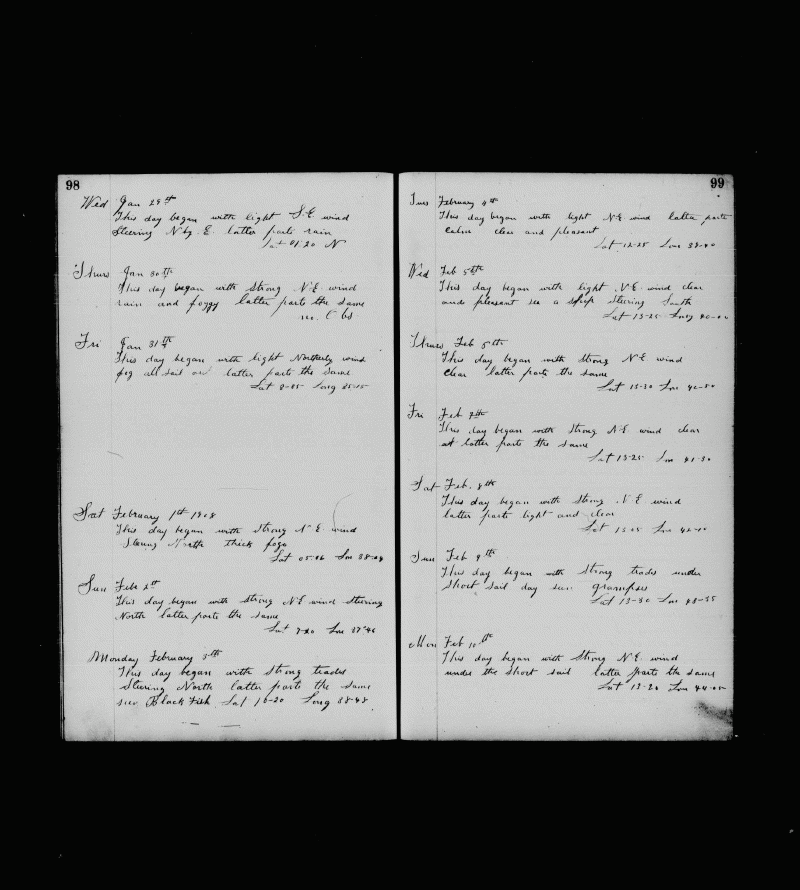 98
Wed Jan 29th
This day began with light S.E. wind
Steering N by E. latter parts rain
Lat 01-20 N
Thurs Jan 30th
This day began with Strong N.E. wind
rain and foggy latter parts the same
no. Obs
Fri Jan 31st
This day began with light Northerly wind
fog all sail on latter parts the same
Lat Long
Sat February 1st 1908
This day began with Strong N E. wind
Steering North thick fogs
Lat 05-06 Lon 38-04
Sun Feb 2nd
This day began with Strong N.E. wind Steering
North latter parts the same
Lat 7-20 Lon 37-46
Monday February 3th
This day began with Strong trades
Steering North latter parts the same
see Black Fish Lat 10-20 Long 38-48
99
Tues February 4th
This day began with light N.E. wind latter parts
calm clear and pleasant
Lat 12-25 Lon 39-40
Wed Feb 5th
This day began with light N.E. wind clear
and pleasant see a Ship Steering South
Lat 13-25 Long 40-00
Thurs Feb
This day began with Strong N.E. wind
clear latter parts the same
Lat 13-30 Lon
Fri Feb
This day began with Strong N.E. wind clear
latter parts the same
Lat 13-25 Lon 41-30
Sat Feb. 8th
This day began with Strong N E wind
latter parts light and clear
Lat Lon 42-10
Sun Feb 9th
This day began with Strong trades under
Short sail day seen grampses
Lat 13-30 Lon 43-35
Mon Feb 10th
This day began with Strong N.E. wind
under the Short sail latter parts the same
Lat 13-20 Lon 44-05